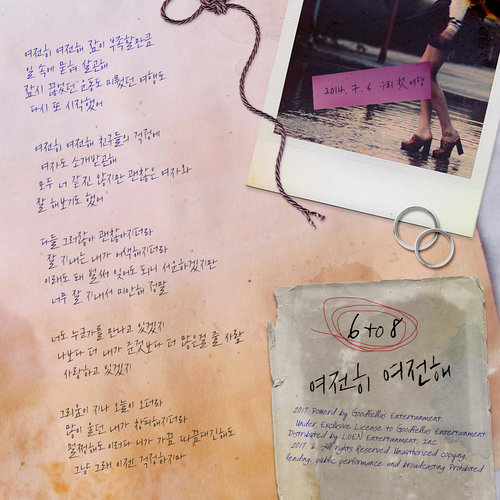 여전히 여전해 잠이 부족할만큼
일 속에 묻혀 살곤해
잠시 끊었던 운동도 미뤘던 여행도
다시 또 시작했어
여전히 여전해 친구들의 걱정에
여자도 소개받곤해
모두 너 같진 않지만 괜찮은 여자와
잘 해보기도 했어
다들 그러잖아 괜찮아지더라
잘 지내는 내가 어색해지더라
이래도 돼 벌써 잊어도 되니 서운하겠지만
너무 잘 지내서 미안해 정말
너도 누군가를 만나고 있겠지
나보다 더 내가 준것보다 더 많은걸 줄 사람
사랑하고 있겠지
그리움이 지나 오늘이 오더라
많이 울던 내가 창피해지더라
멀쩡해도 이러다 니가 가끔 따끔대긴해도
그냥 그래 이젠 걱정하지마
2014. 7. 6 우리 첫 여행
6 to 8
여전히 여전해
2017. Powerd by Goodfellas Entertainment
Under Exclusive License to Goodfellas Entertainment
Distributed by LOEN Entertainment, Inc.
2017. 6. All rights Reserved. Unauthorized copying,
lending, public performance and broadcasting Prohibited